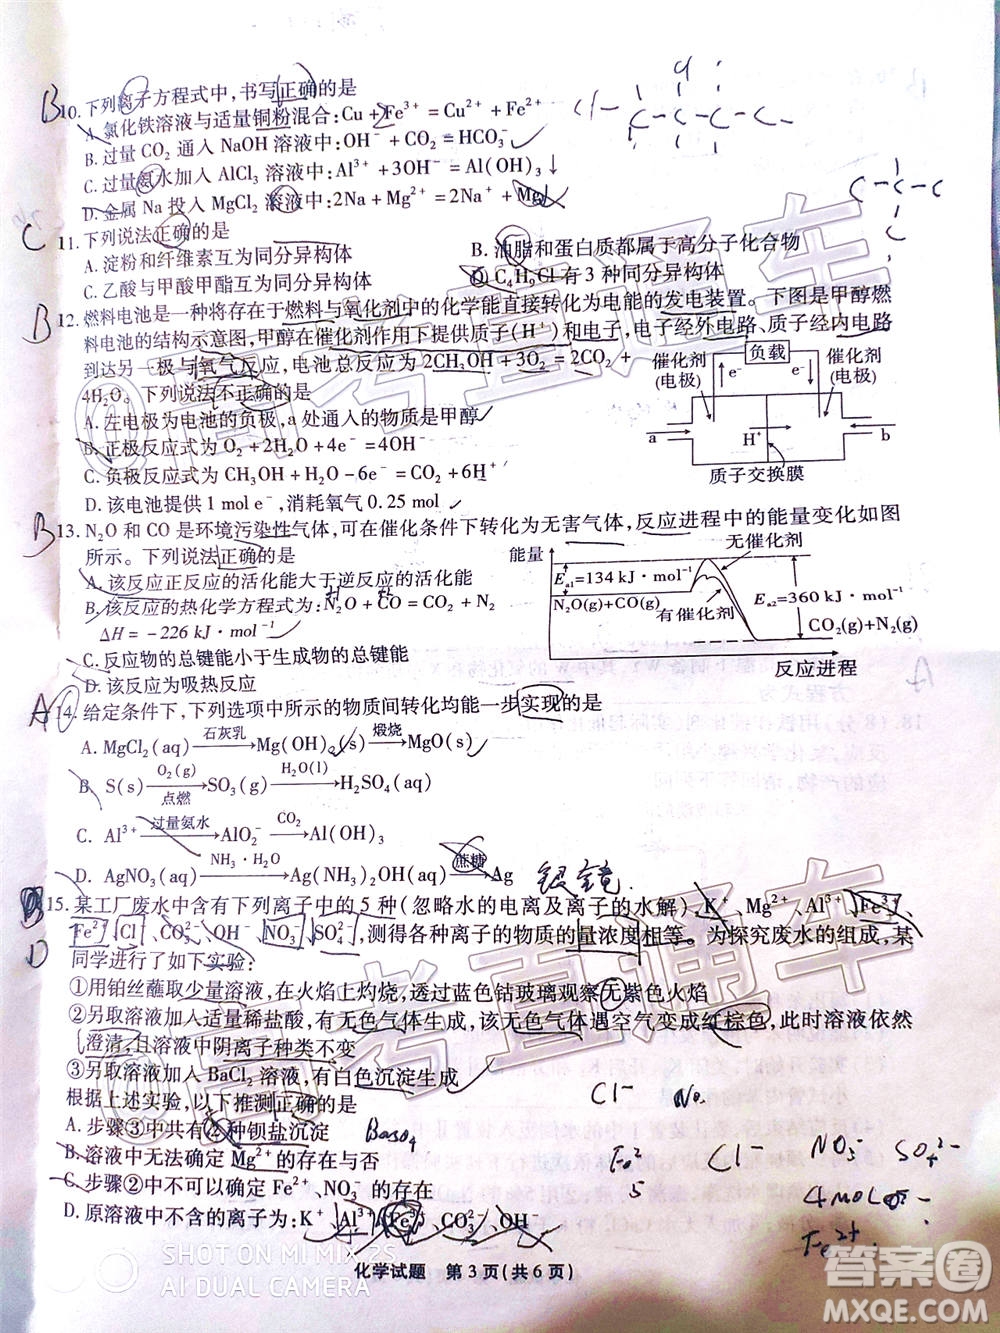 B 10. 下列离子方程式中,书写正确的是
A. 氯化铁溶液与适量铜粉混合:Cu + Fe³⁺ = Cu²⁺ + Fe²⁺
B. 过量 CO₂ 通入 NaOH 溶液中:OH⁻ + CO₂ = HCO₃⁻
C. 过量氨水加入 AlCl₃ 溶液中:Al³⁺ + 3OH⁻ = Al(OH)₃↓
D. 金属 Na 投入 MgCl₂ 溶液中:2Na + Mg²⁺ = 2Na⁺ + Mg
C 11. 下列说法正确的是
A. 淀粉和纤维素互为同分异构体 B. 油脂和蛋白质都属于高分子化合物
C. 乙酸与甲酸甲酯互为同分异构体 D. C₄H₉Cl 有 3 种同分异构体
B 12. 燃料电池是一种将存在于燃料与氧化剂中的化学能直接转化为电能的发电装置。下图是甲醇燃
料电池的结构示意图,甲醇在催化剂作用下提供质子(H⁺)和电子,电子经外电路、质子经内电路
到达另一极与氧气反应,电池总反应为 2CH₃OH + 3O₂ = 2CO₂ +
4H₂O。下列说法不正确的是
A. 左电极为电池的负极,a 处通入的物质是甲醇
B. 正极反应式为 O₂ + 2H₂O + 4e⁻ = 4OH⁻
C. 负极反应式为 CH₃OH + H₂O − 6e⁻ = CO₂ + 6H⁺
D. 该电池提供 1 mol e⁻,消耗氧气 0.25 mol
催化剂 (电极) 负载 催化剂 (电极)
e⁻ e⁻
a H⁺ b
质子交换膜
B 13. N₂O 和 CO 是环境污染性气体,可在催化条件下转化为无害气体,反应进程中的能量变化如图
所示。下列说法正确的是
A. 该反应正反应的活化能大于逆反应的活化能
B. 该反应的热化学方程式为:N₂O + CO = CO₂ + N₂
ΔH = −226 kJ·mol⁻¹
C. 反应物的总键能小于生成物的总键能
D. 该反应为吸热反应
能量 无催化剂
Eₐ₁=134 kJ·mol⁻¹
N₂O(g)+CO(g)
有催化剂
Eₐ₂=360 kJ·mol⁻¹
CO₂(g)+N₂(g)
反应进程
A 14. 给定条件下,下列选项中所示的物质间转化均能一步实现的是
A. MgCl₂(aq) —石灰乳→ Mg(OH)₂(s) —煅烧→ MgO(s)
B. S(s) —O₂(g) 点燃→ SO₃(g) —H₂O(l)→ H₂SO₄(aq)
C. Al³⁺ —过量氨水→ AlO₂⁻ —CO₂→ Al(OH)₃
D. AgNO₃(aq) —NH₃·H₂O→ Ag(NH₃)₂OH(aq) —蔗糖→ Ag 银镜.
D 15. 某工厂废水中含有下列离子中的 5 种(忽略水的电离及离子的水解) K⁺、Mg²⁺、Al³⁺、Fe³⁺、
Fe²⁺、Cl⁻、CO₃²⁻、OH⁻、NO₃⁻、SO₄²⁻,测得各种离子的物质的量浓度相等。为探究废水的组成,某
同学进行了如下实验:
①用铂丝蘸取少量溶液,在火焰上灼烧,透过蓝色钴玻璃观察无紫色火焰
②另取溶液加入适量稀盐酸,有无色气体生成,该无色气体遇空气变成红棕色,此时溶液依然
澄清,且溶液中阴离子种类不变
③另取溶液加入 BaCl₂ 溶液,有白色沉淀生成
根据上述实验,以下推测正确的是
A. 步骤③中共有 2 种钡盐沉淀 BaSO₄
B. 溶液中无法确定 Mg²⁺ 的存在与否
C. 步骤②中不可以确定 Fe²⁺、NO₃⁻ 的存在
D. 原溶液中不含的离子为:K⁺、Al³⁺、Fe³⁺、CO₃²⁻、OH⁻
Cl⁻
Cl⁻ NO₃⁻ SO₄²⁻
Fe²⁺
化学试题 第 3 页(共 6 页)
SHOT ON MI MIX 2S
AI DUAL CAMERA
@高考直通车
@高考直通车
答案圈
MXQE.COM